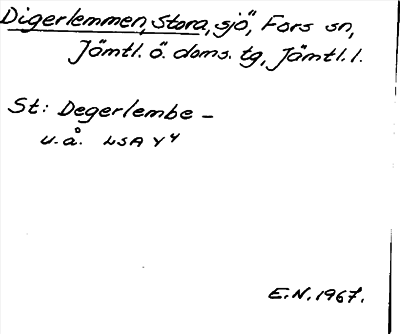 Digerlemmen, Stora, sjö, Fors sn,
Jämtl. ö. doms. tg, Jämtl. l.
St: Degerlembe –
u.å. LSA Y 4
E.N. 1967.